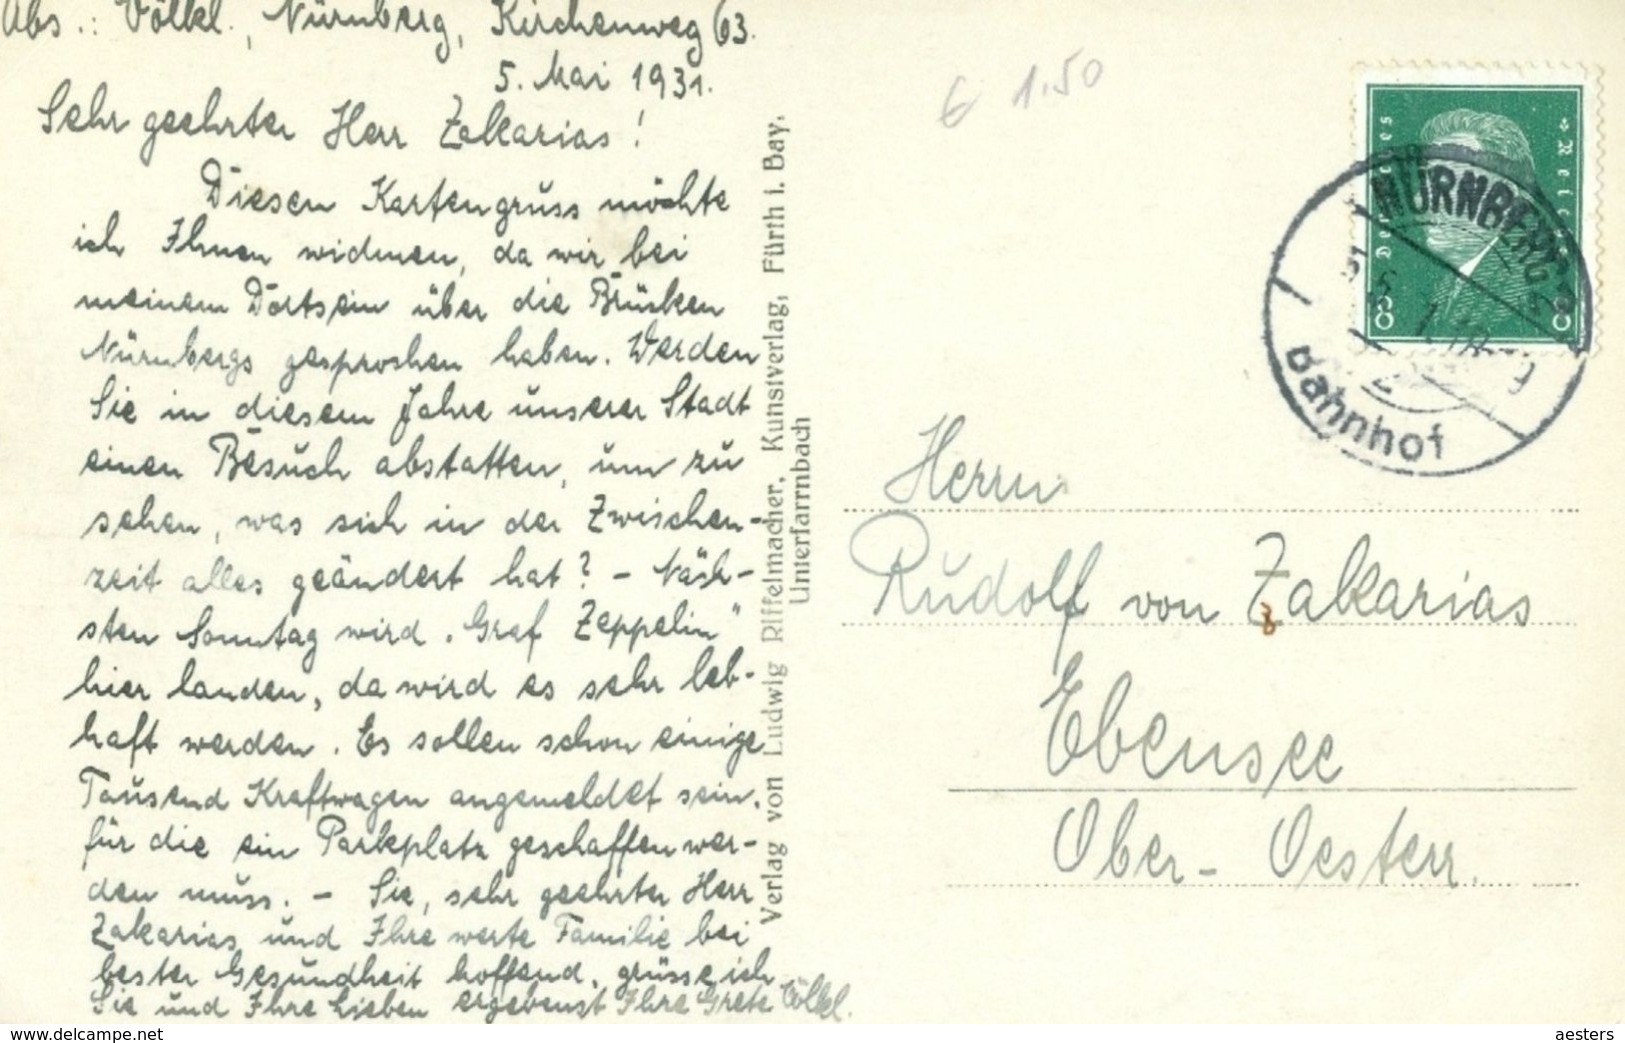 Abs.: Völkl., Nürnberg, Kirchenweg 63.
5. Mai 1931.
Sehr geehrter Herr Zakarias!
Diesen Kartengruss möchte
ich Ihnen widmen, da wir bei
meinem Dortsein über die Brücken
Nürnbergs gesprochen haben. Werden
Sie in diesem Jahre unserer Stadt
einen Besuch abstatten, um zu
sehen, was sich in der Zwischen-
zeit alles geändert hat? – Näch-
sten Sonntag wird „Graf Zeppelin"
hier landen, da wird es sehr leb-
haft werden. Es sollen schon einige
Tausend Kraftwagen angemeldet sein,
für die ein Parkplatz geschaffen wer-
den muss. – Sie, sehr geehrter Herr
Zakarias und Ihre werte Familie bei
bester Gesundheit hoffend, grüsse ich
Sie und Ihre Lieben ergebenst Ihre Grete Völkl.
Verlag von Ludwig Riffelmacher, Kunstverlag, Fürth i. Bay.
Unterfarrnbach
€ 1.50
Deutsches Reich
8 8
NÜRNBERG
Bahnhof
Herrn
Rudolf von Zakarias
Ebensee
Ober-Oesterr.
www.delcampe.net
aesters